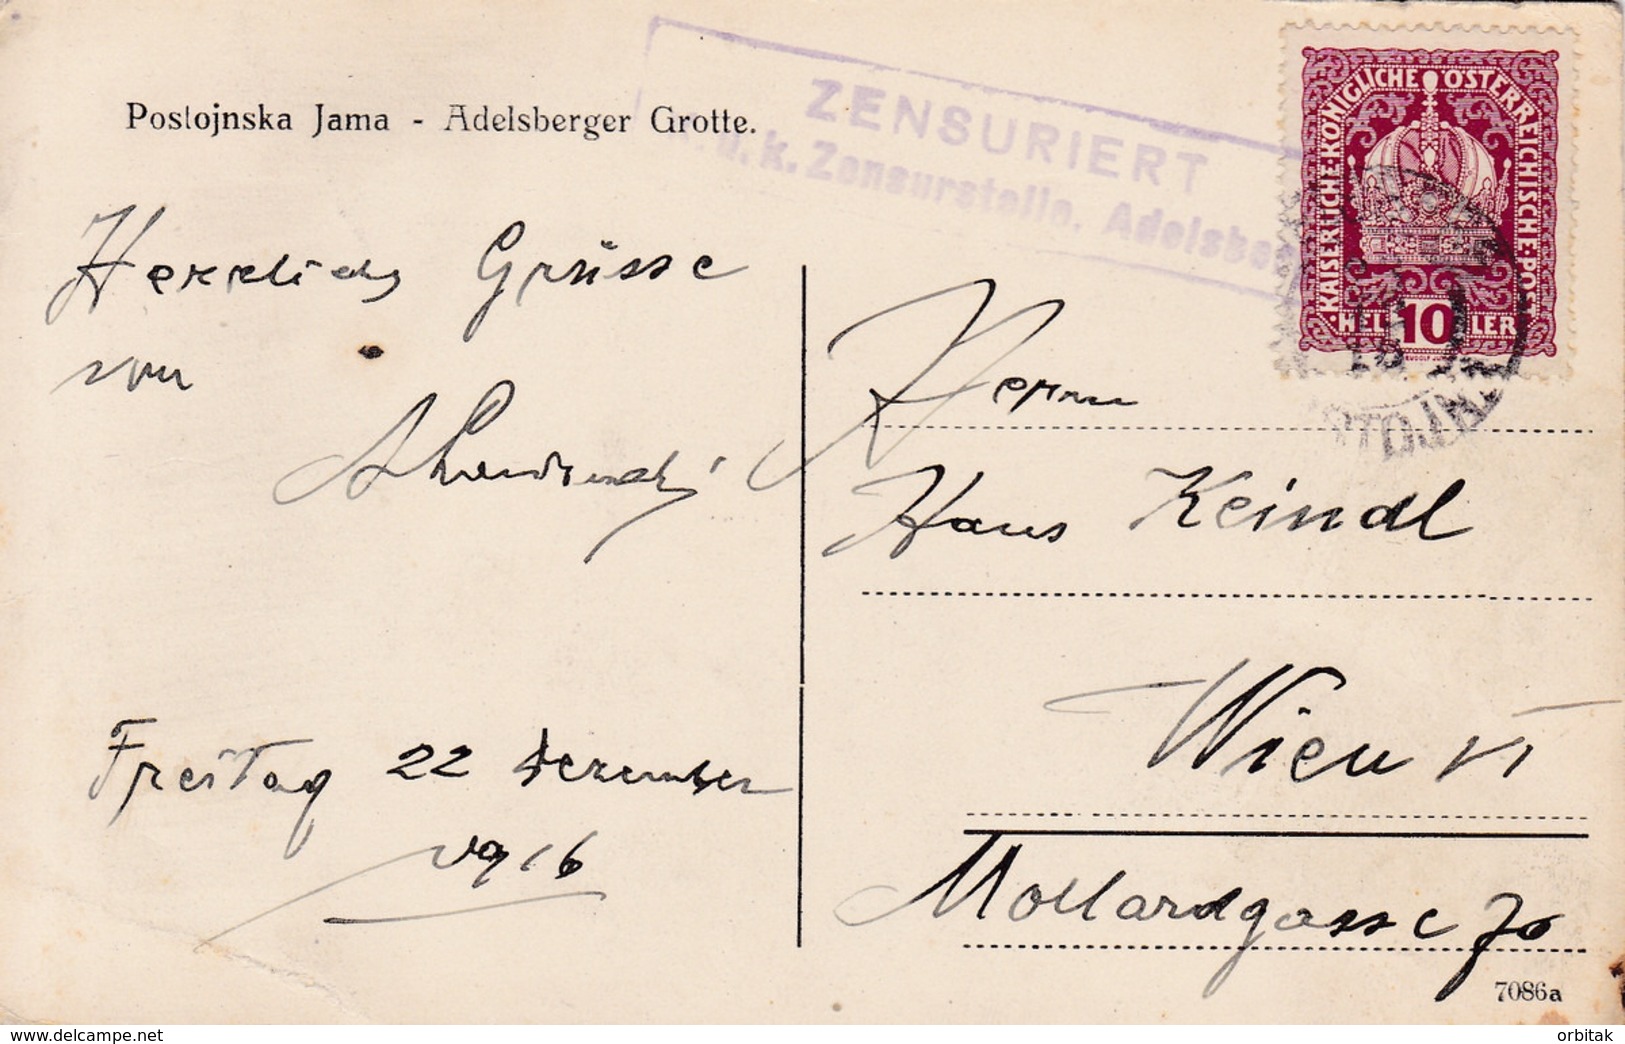 Postojnska Jama - Adelsberger Grotte.
ZENSURIERT
k. Zensurstelle, Adelsbe
KAISERLICHE·KÖNIGLICHE ÖSTERREICHISCHE·POST
HEL 10 LER
Herrliche Grüsse
von
Freitag 22 Dezember
1916
Herrn
Hans Keindl
Wien VI
Mollardgasse 70
7086a
orbitak